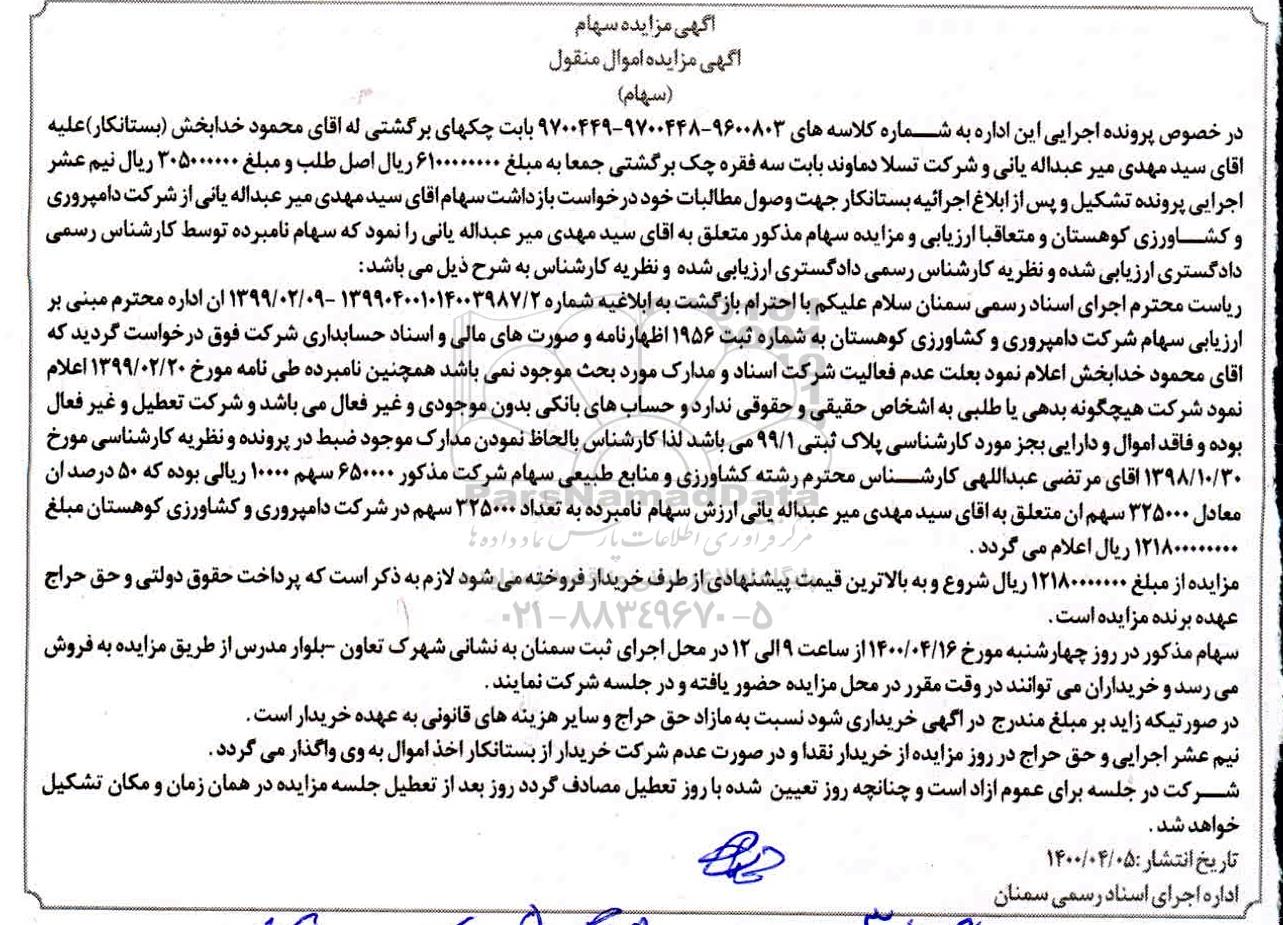 اگهی مزایده سهام
اگهی مزایده اموال منقول
(سهام)
در خصوص پرونده اجرایی این اداره به شماره کلاسه های ۹۶۰۰۸۰۳-۹۷۰۰۴۴۸-۹۷۰۰۴۴۹ بابت چکهای برگشتی له اقای محمود خدابخش (بستانکار)علیه
اقای سید مهدی میر عبداله یانی و شرکت تسلا دماوند بابت سه فقره چک برگشتی جمعا به مبلغ ۶۱۰۰۰۰۰۰۰۰ ریال اصل طلب و مبلغ ۳۰۵۰۰۰۰۰۰ ریال نیم عشر
اجرایی پرونده تشکیل و پس از ابلاغ اجرائیه بستانکار جهت وصول مطالبات خود درخواست بازداشت سهام اقای سید مهدی میر عبداله یانی از شرکت دامپروری
و کشاورزی کوهستان و متعاقبا ارزیابی و مزایده سهام مذکور متعلق به اقای سید مهدی میر عبداله یانی را نمود که سهام نامبرده توسط کارشناس رسمی
دادگستری ارزیابی شده و نظریه کارشناس رسمی دادگستری ارزیابی شده و نظریه کارشناس به شرح ذیل می باشد:
ریاست محترم اجرای اسناد رسمی سمنان سلام علیکم با احترام بازگشت به ابلاغیه شماره ۱۳۹۹۰۴۰۰۱۰۱۴۰۰۳۹۸۷/۲ -۱۳۹۹/۰۲/۰۹ ان اداره محترم مبنی بر
ارزیابی سهام شرکت دامپروری و کشاورزی کوهستان به شماره ثبت ۱۹۵۶ اظهارنامه و صورت های مالی و اسناد حسابداری شرکت فوق درخواست گردید که
اقای محمود خدابخش اعلام نمود بعلت عدم فعالیت شرکت اسناد و مدارک مورد بحث موجود نمی باشد همچنین نامبرده طی نامه مورخ ۱۳۹۹/۰۲/۲۰ اعلام
نمود شرکت هیچگونه بدهی یا طلبی به اشخاص حقیقی و حقوقی ندارد و حساب های بانکی بدون موجودی و غیر فعال می باشد و شرکت تعطیل و غیر فعال
بوده و فاقد اموال و دارایی بجز مورد کارشناسی پلاک ثبتی ۹۹/۱ می باشد لذا کارشناس بالحاظ نمودن مدارک موجود ضبط در پرونده و نظریه کارشناسی مورخ
۱۳۹۸/۱۰/۳۰ اقای مرتضی عبداللهی کارشناس محترم رشته کشاورزی و منابع طبیعی سهام شرکت مذکور ۶۵۰۰۰۰ سهم ۱۰۰۰۰ ریالی بوده که ۵۰ درصد ان
معادل ۳۲۵۰۰۰ سهم ان متعلق به اقای سید مهدی میر عبداله یانی ارزش سهام نامبرده به تعداد ۳۲۵۰۰۰ سهم در شرکت دامپروری و کشاورزی کوهستان مبلغ
۱۲۱۸۰۰۰۰۰۰۰ ریال اعلام می گردد .
مزایده از مبلغ ۱۲۱۸۰۰۰۰۰۰۰ ریال شروع و به بالاترین قیمت پیشنهادی از طرف خریدار فروخته می شود لازم به ذکر است که پرداخت حقوق دولتی و حق حراج
عهده برنده مزایده است .
سهام مذکور در روز چهارشنبه مورخ ۱۴۰۰/۰۴/۱۶ از ساعت ۹ الی ۱۲ در محل اجرای ثبت سمنان به نشانی شهرک تعاون -بلوار مدرس از طریق مزایده به فروش
می رسد و خریداران می توانند در وقت مقرر در محل مزایده حضور یافته و در جلسه شرکت نمایند .
در صورتیکه زاید بر مبلغ مندرج در اگهی خریداری شود نسبت به مازاد حق حراج و سایر هزینه های قانونی به عهده خریدار است .
نیم عشر اجرایی و حق حراج در روز مزایده از خریدار نقدا و در صورت عدم شرکت خریدار از بستانکار اخذ اموال به وی واگذار می گردد .
شرکت در جلسه برای عموم ازاد است و چنانچه روز تعیین شده با روز تعطیل مصادف گردد روز بعد از تعطیل جلسه مزایده در همان زمان و مکان تشکیل
خواهد شد .
تاریخ انتشار :۱۴۰۰/۰۴/۰۵
اداره اجرای اسناد رسمی سمنان
ParsNamadData
مرکز فرآوری اطلاعات پارس نماد داده ها
۰۲۱-۸۸۳۴۹۶۷۰-۵